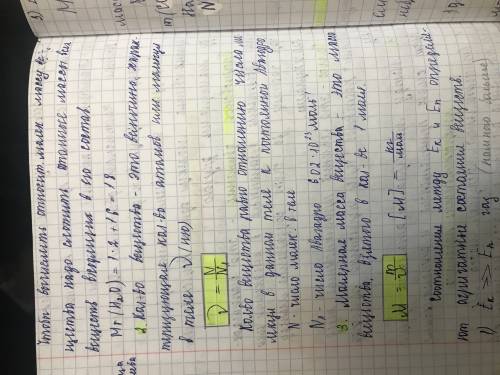 Чтобы вычислить относит. молек. массу ве-
щества надо сложить атомные массы всех
веществ входящих в его состав.
Mr (H₂O) = 1·2 + 16 = 18
2. Кол-во вещества - это величина, харак-
теризующая кол-во атомов или молекул
в теле ν (ню)
ν = N/Nₐ
Кол-во вещества равно отношению числа
молекул в данном теле к постоянной Авогадро
N - число молек. в теле
Nₐ - число Авогадро 6,02·10²³ моль⁻¹
3. Молярная масса вещества - это масса
вещества, взятого в кол-ве 1 моля.
M = m/ν [M] = кг/моль
Соотношения между Eк и Eп определя-
ют агрегатные состояния веществ.
1) Eк >> Eп газ (намного больше)